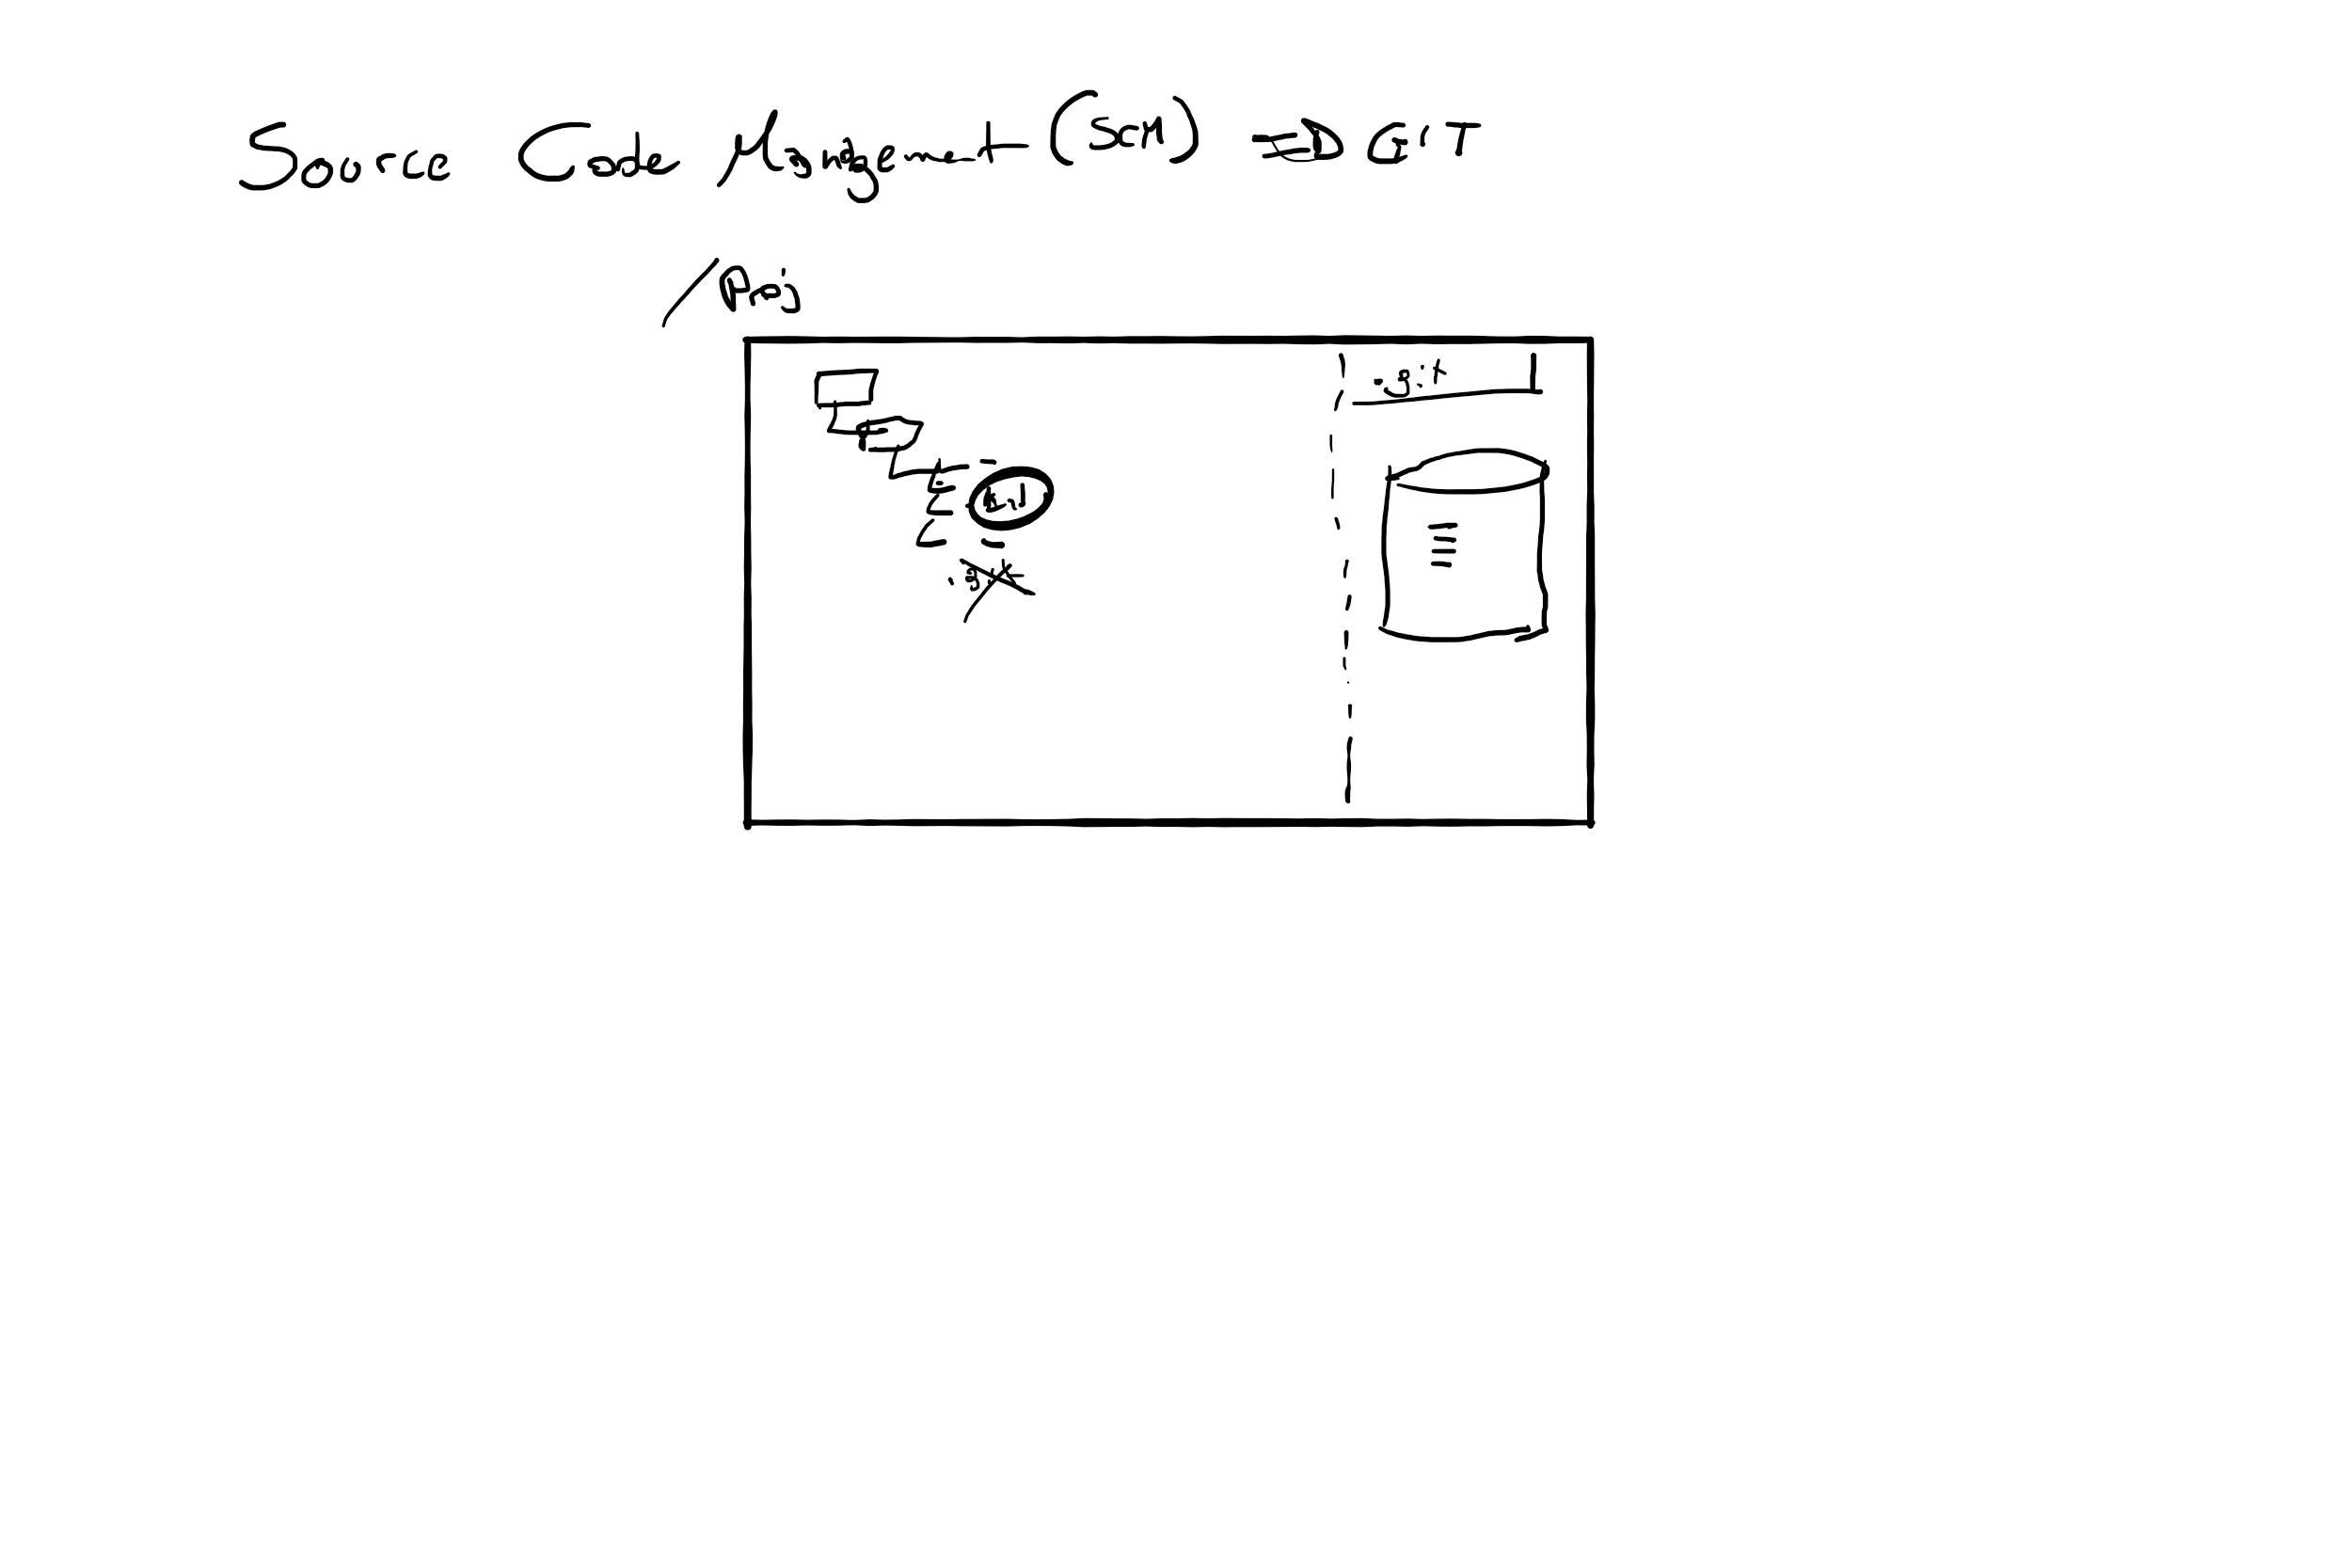 Source Code Management (SCM) ⇒ GIT
/Proj
.git
.git